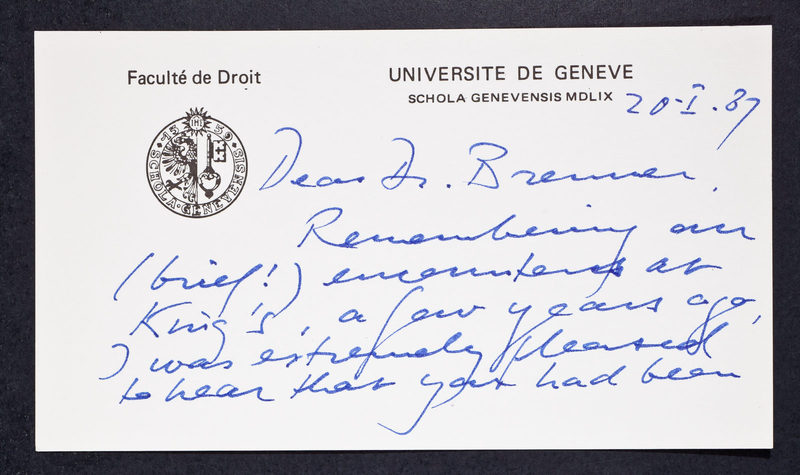 Faculté de Droit
UNIVERSITE DE GENEVE
SCHOLA GENEVENSIS MDLIX
20.I.87
1559
SCHOLA GENEVENSIS
Dear Dr. Brenner,
Remembering our
(brief!) encounters at
King's, a few years ago,
I was extremely pleased
to hear that you had been